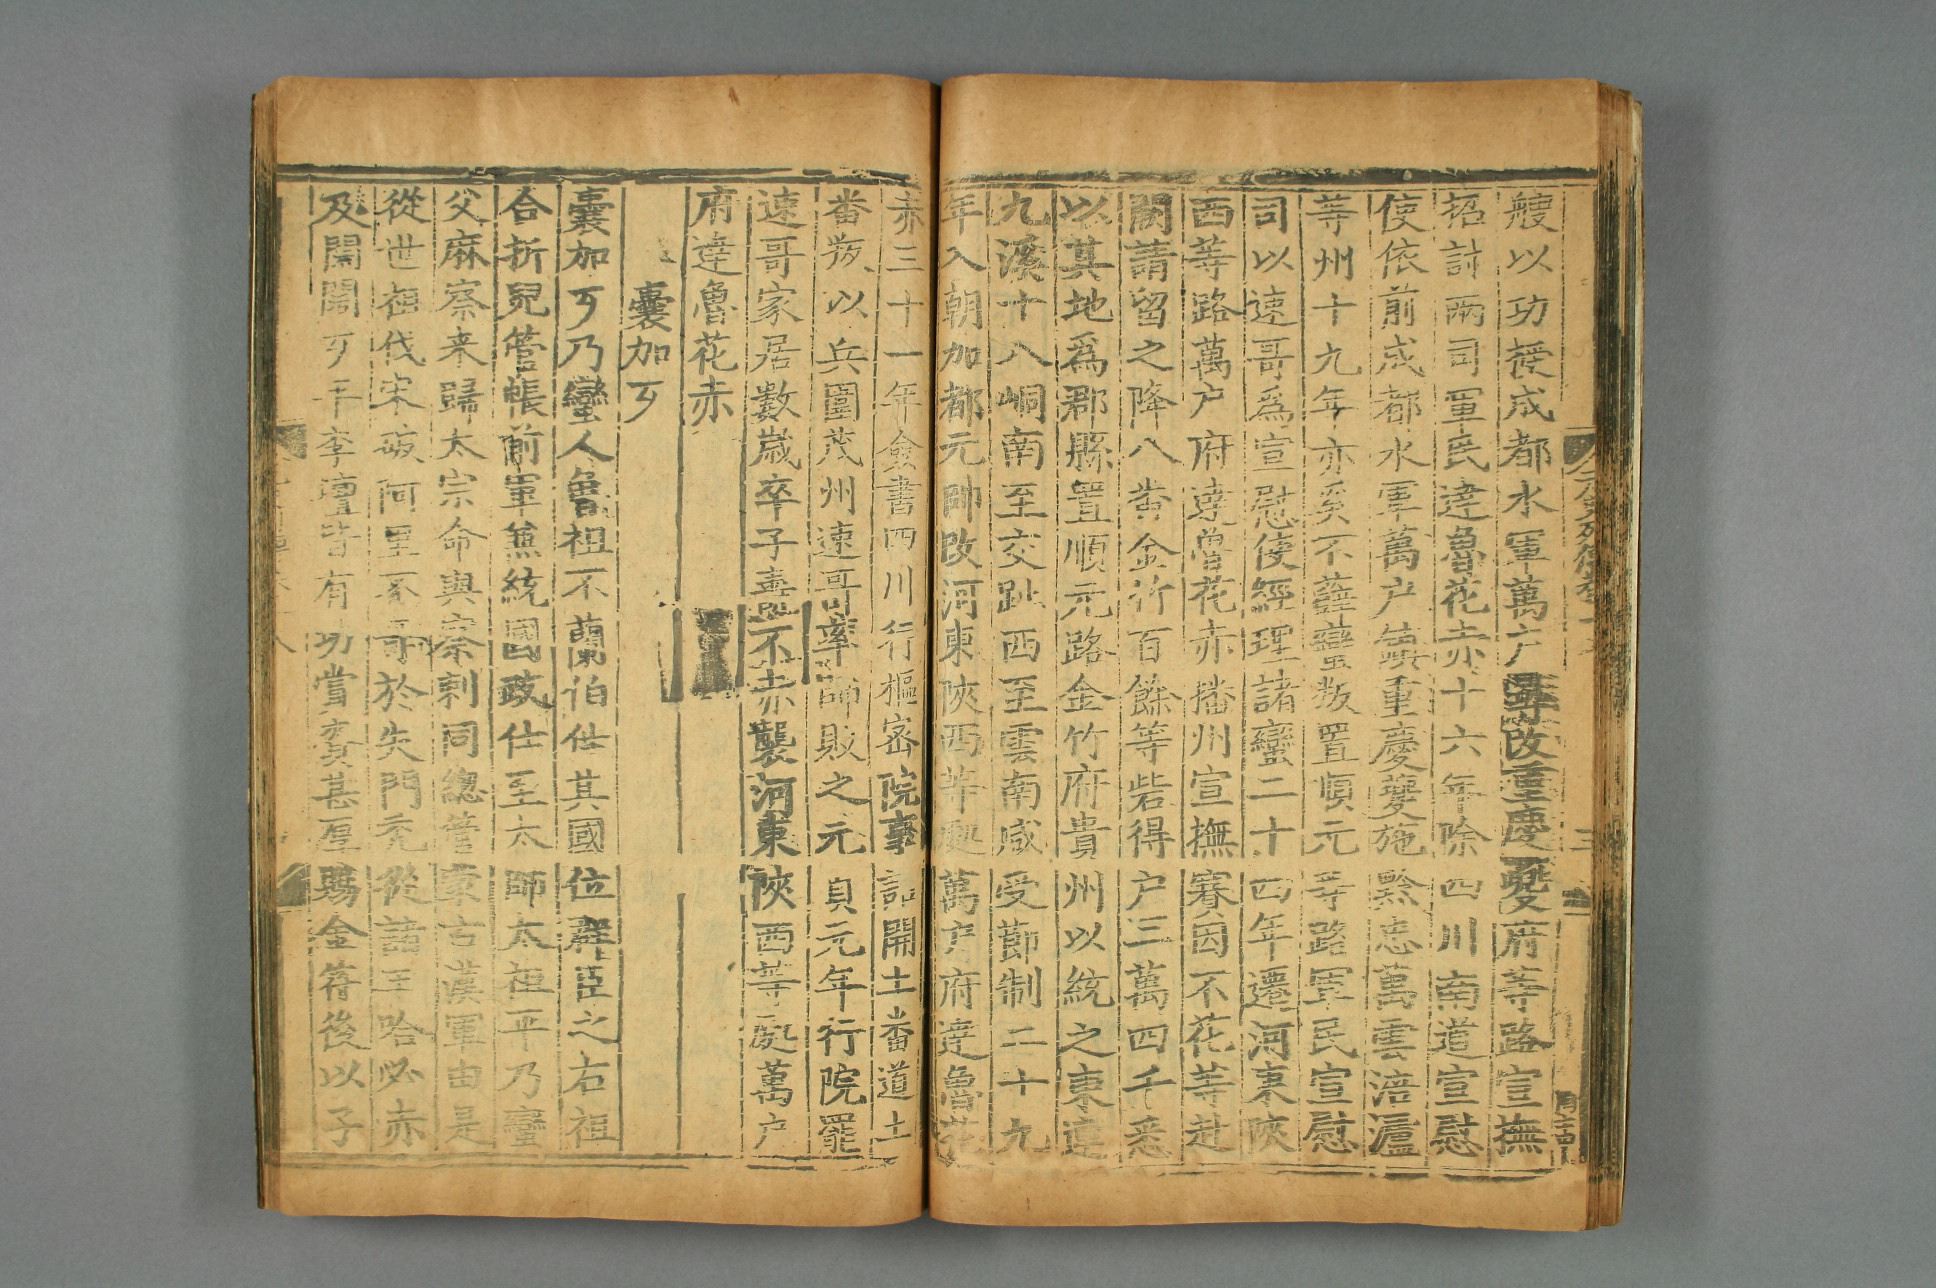 艘以功授成都水軍萬戶尋改重慶夔府等路宣撫
招討兩司軍民達魯花赤十六年除四川南道宣慰
使依前成都水軍萬戶鎮重慶夔施黔忠萬雲涪瀘
等州十九年亦奚不薛蠻叛置順元等路軍民宣慰
司以速哥爲宣慰使經理諸蠻二十四年遷河東陝
西等路萬戶府達魯花赤播州宣撫賽因不花等赴
闕請留之降八番金竹百餘等砦得戶三萬四千悉
以其地爲郡縣置順元路金竹府貴州以統之東連
九溪十八峒南至交趾西至雲南咸受節制二十九
年入朝加都元帥改河東陝西等處萬戶府達魯花
赤三十一年僉書四川行樞密院事詔開土番道土
番叛以兵圍茂州速哥率師敗之元貞元年行院罷
速哥家居數歲卒子壽 不赤襲河東陝西等處萬戶
府達魯花赤
囊加歹
囊加歹乃蠻人魯祖不蘭伯仕其國位羣臣之右祖
合折兒管帳前軍兼統國政仕至太師太祖平乃蠻
父麻察来歸太宗命與察剌同總管蒙古漢軍由是
從世祖伐宋破 阿里不哥於失門禿從諸王哈必赤
及闊闊歹平李璮皆有功賞賚甚厚賜金符後以子